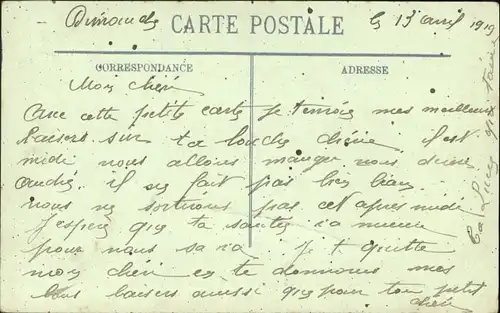 Dimanche
CARTE POSTALE
le 13 avril 1919
CORRESPONDANCE
ADRESSE
Mon chéri
Avec cette petite carte je t'envoie mes meilleurs
baisers sur ta bouche chérie il est
midi nous allons manger nous deux
andré. il ne fait pas bien beau
nous ne sortirons pas cet après midi
J'espère que ta santée va mieux
pour nous sa va Je te quitte
mon chéri en te donnant mes
bons baisers aussi que pour ton petit
chéri
Ta Lucie qui t'aime